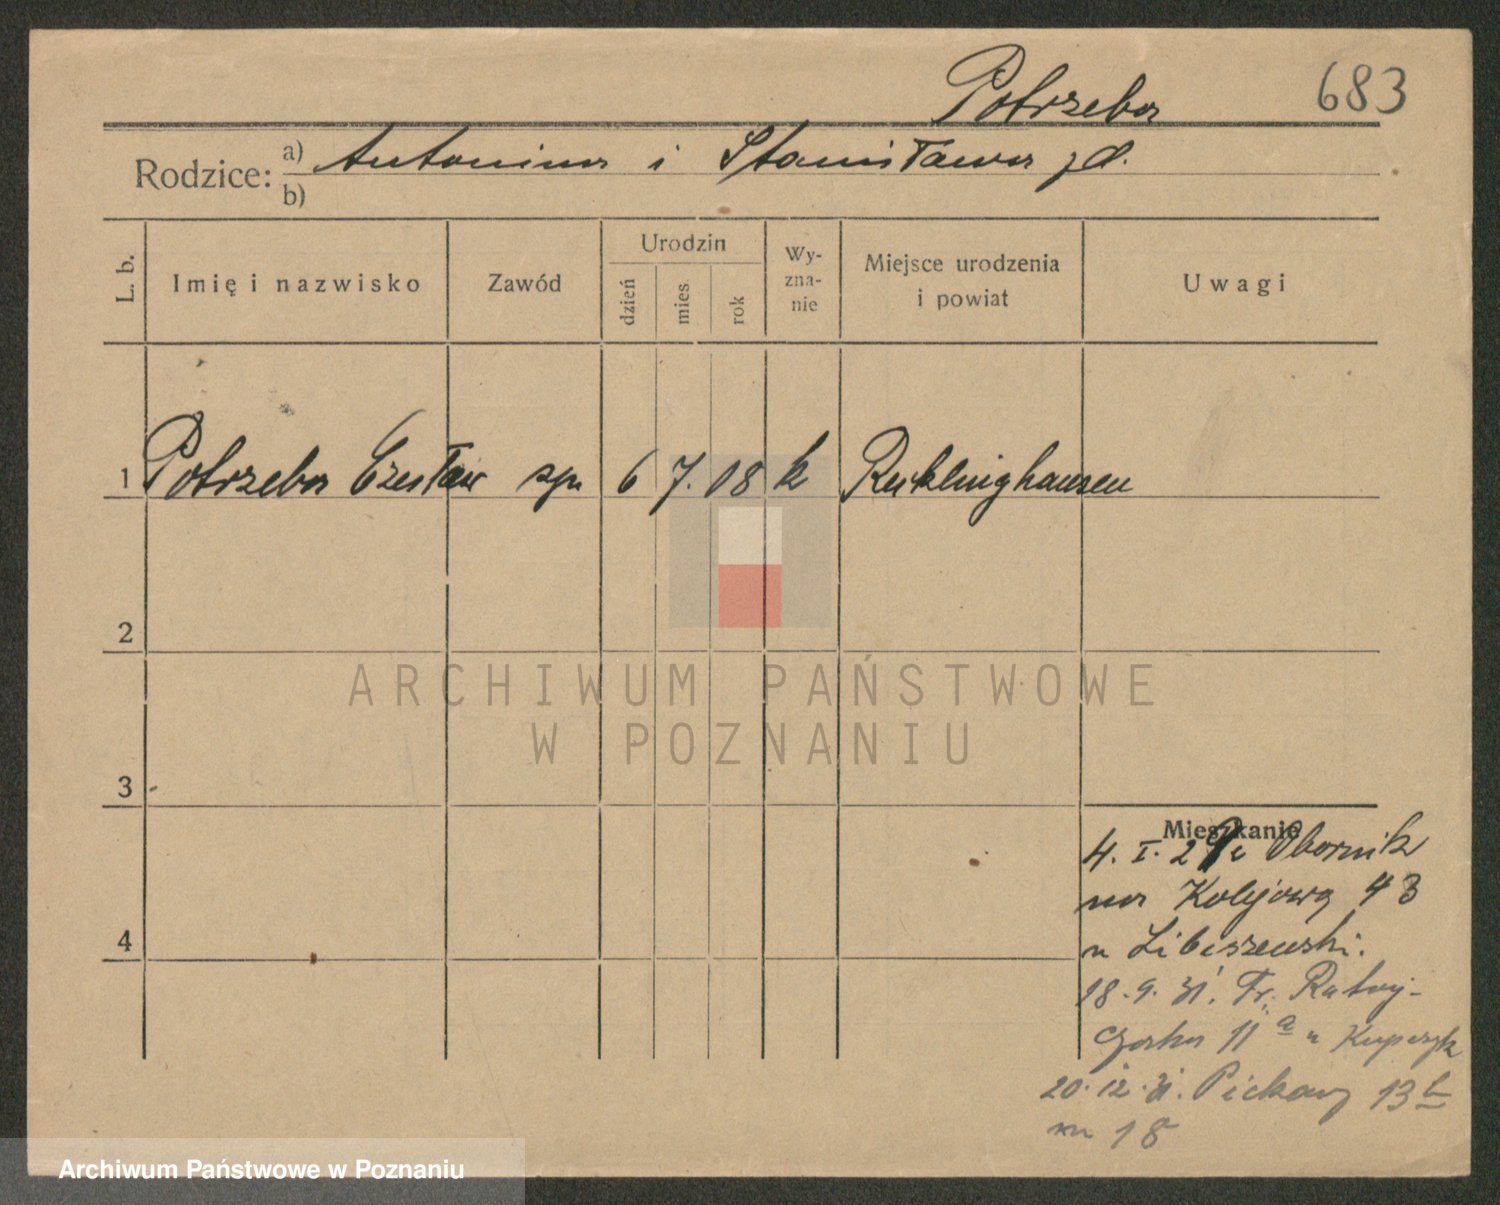 Potrzeba 683
Rodzice: a) Antonina i Stanisława zd.
b)
L. b. Imię i nazwisko Zawód Urodzin dzień mies. rok Wy-zna-nie Miejsce urodzenia i powiat Uwagi
1 Potrzeba Czesław syn 6 7. 08 k Recklinghausen
2
ARCHIWUM PAŃSTWOWE
W POZNANIU
3
Mieszkanie
4. I. 29 z Obornik
na Kolejową 43
u Libiszewski.
4
18.9.31. Fr. Rataj-
czaka 11a u Kupczyk
20.12.31. Piekary 13b
m 18
Archiwum Państwowe w Poznaniu